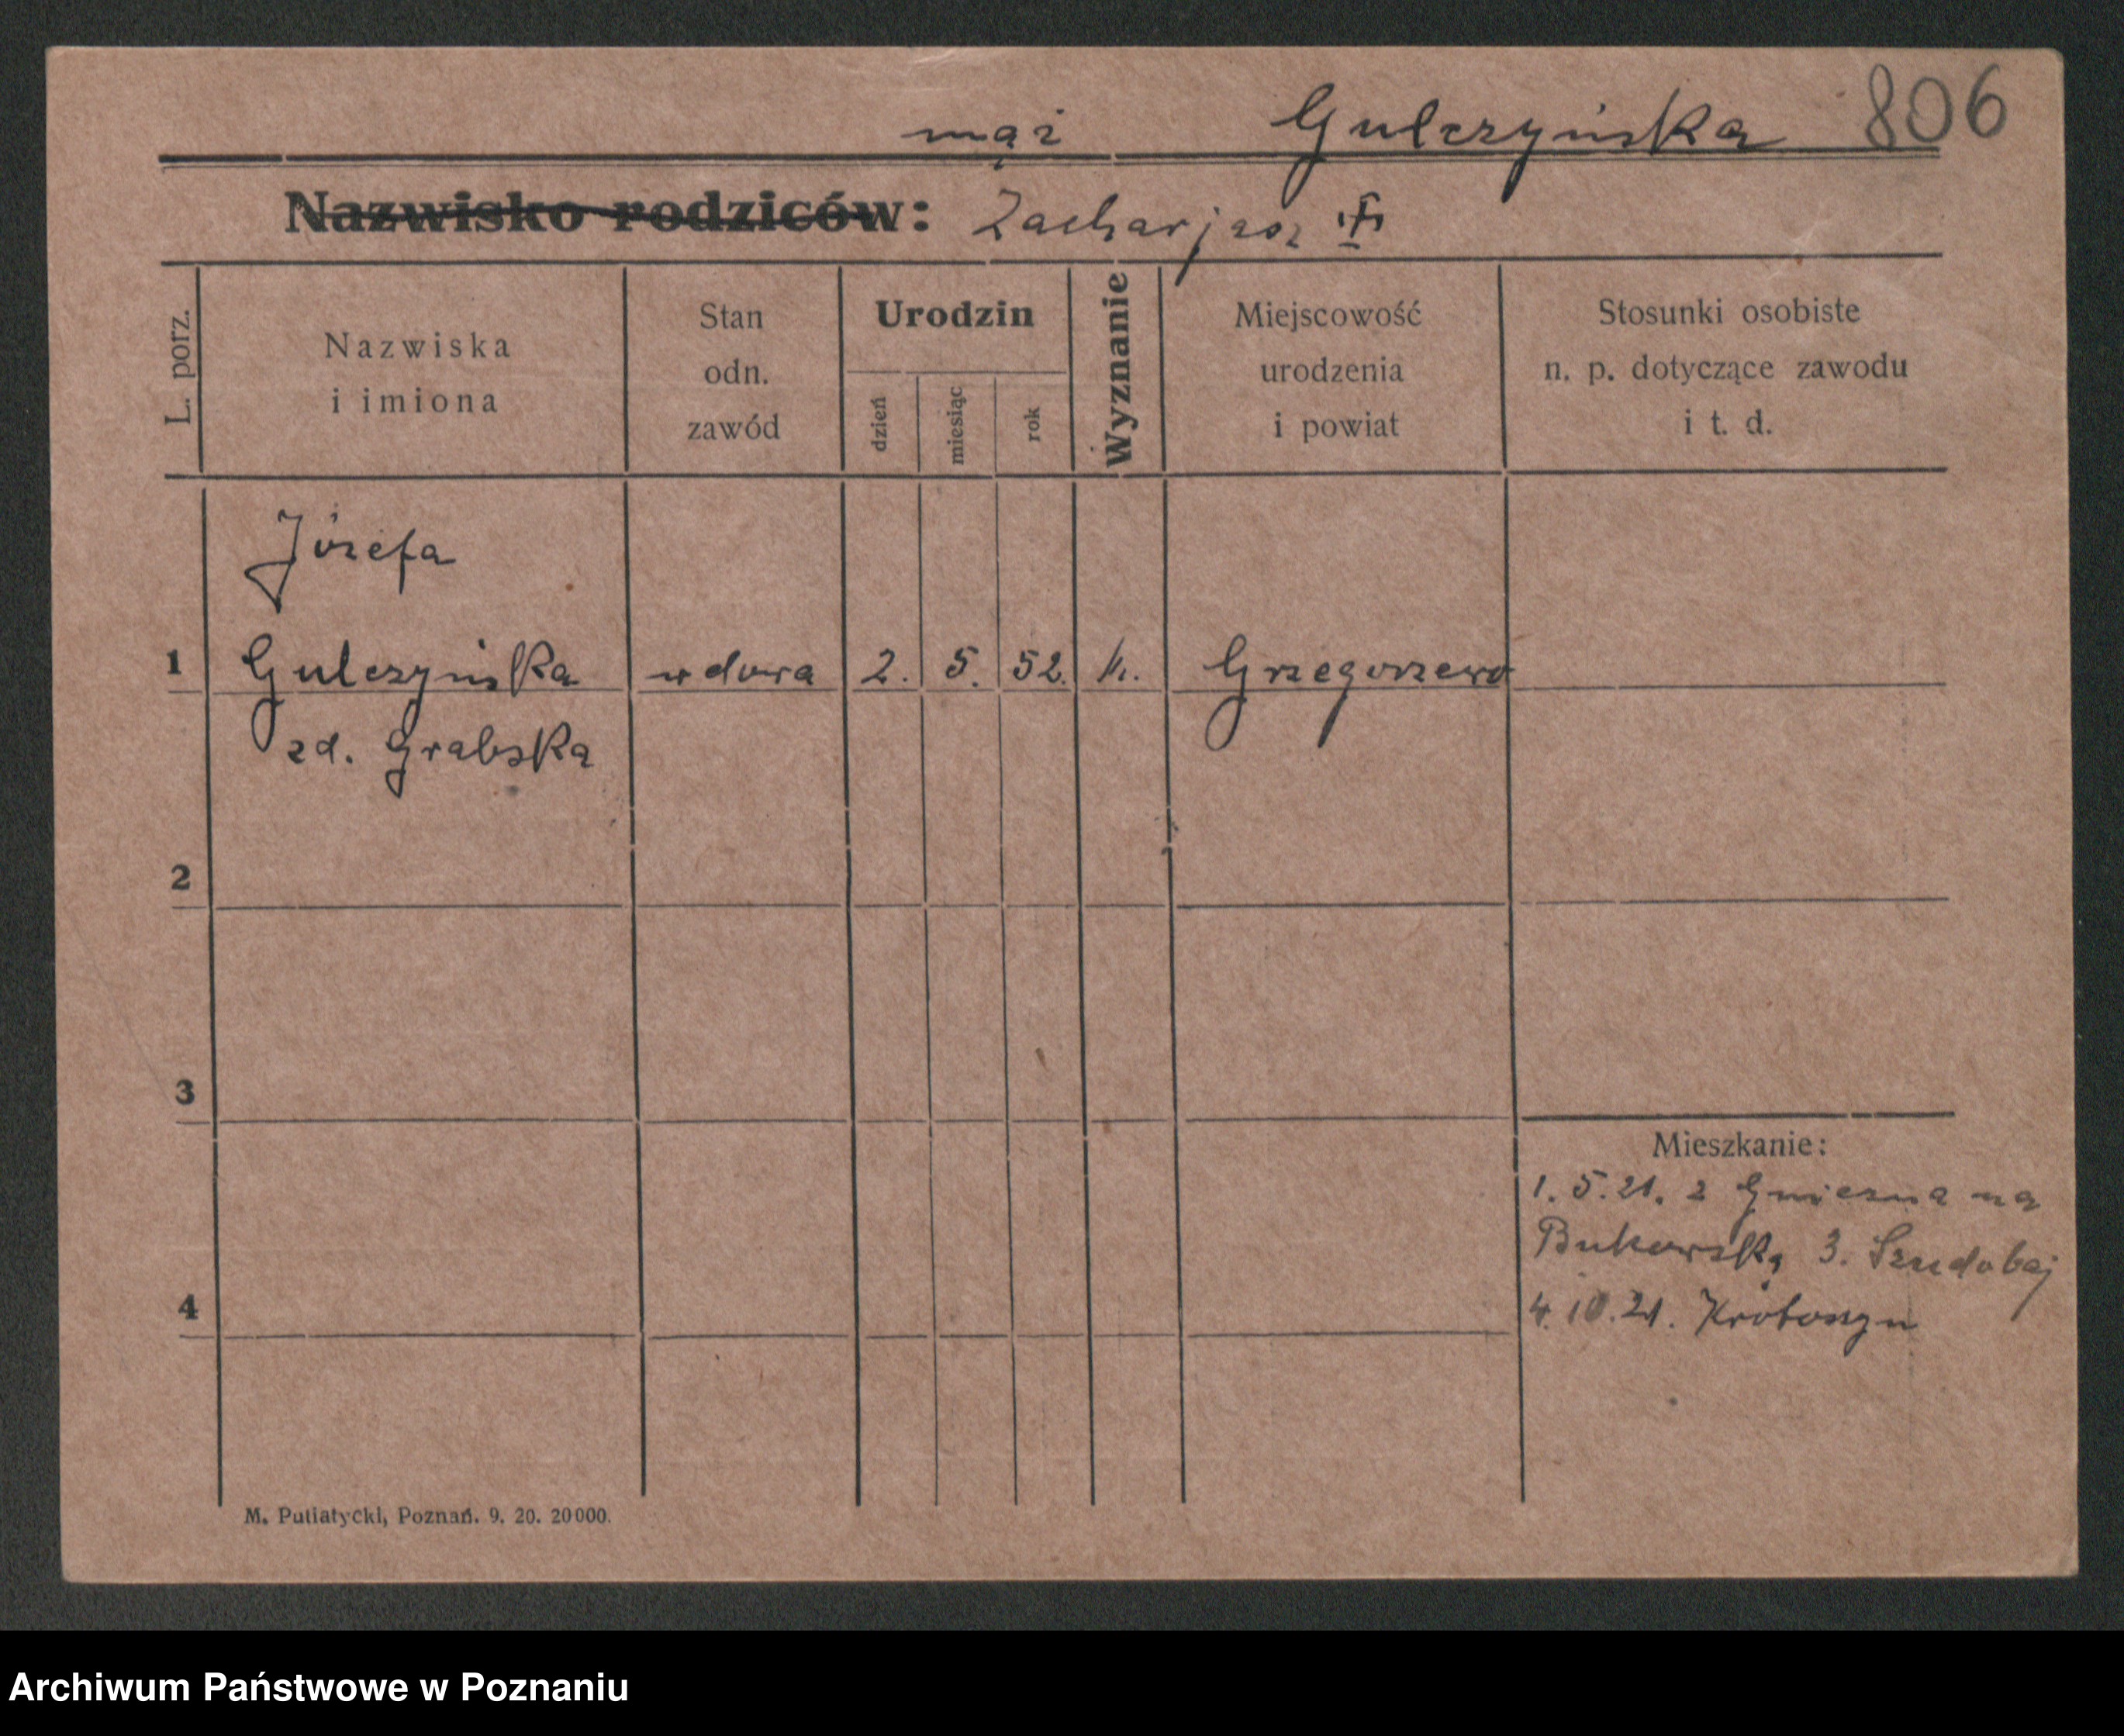 mąż Gulczyńska 806
Nazwisko rodziców: Zacharjasz
L. porz.
Nazwiska
i imiona
Stan
odn.
zawód
Urodzin
dzień
miesiąc
rok
Wyznanie
Miejscowość
urodzenia
i powiat
Stosunki osobiste
n. p. dotyczące zawodu
i t. d.
Józefa
1 Gulczyńska wdowa 2. 5. 52. k. Grzegorzewo
zd. Grabska
2
3
4
Mieszkanie:
1. 5. 21. z Gniezna na
Bukowską 3.
4. 10. 21. Krotoszyn
M. Putiatycki, Poznań. 9. 20. 20000.
Archiwum Państwowe w Poznaniu